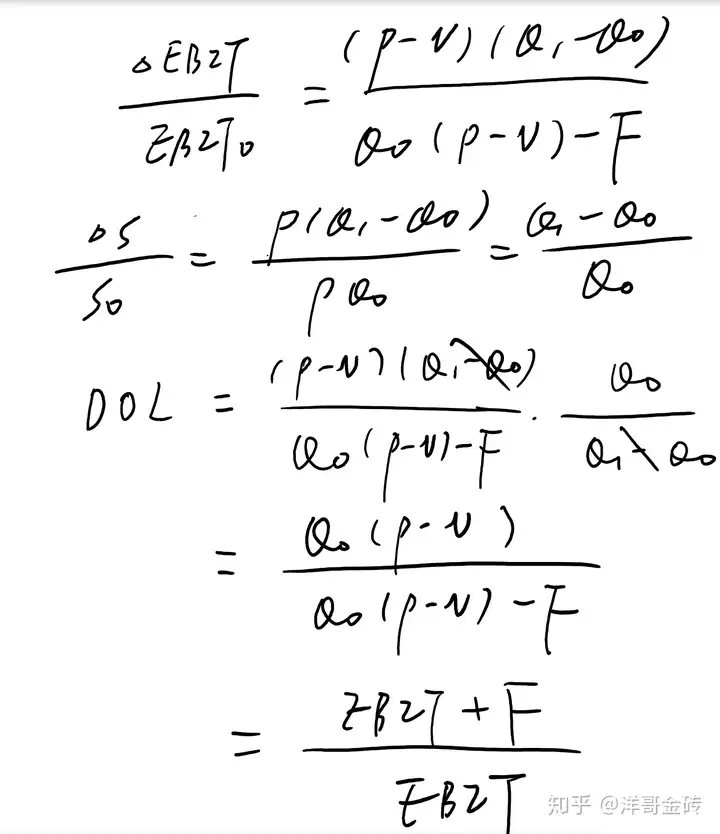 ΔEBIT/EBIT₀ = (P-V)(Q₁-Q₀)/Q₀(P-V)-F
ΔS/S₀ = P(Q₁-Q₀)/PQ₀ = Q₁-Q₀/Q₀
DOL = (P-V)(Q₁-Q₀)/Q₀(P-V)-F · Q₀/Q₁-Q₀
= Q₀(P-V)/Q₀(P-V)-F
= EBIT+F/EBIT
知乎 @洋哥金砖